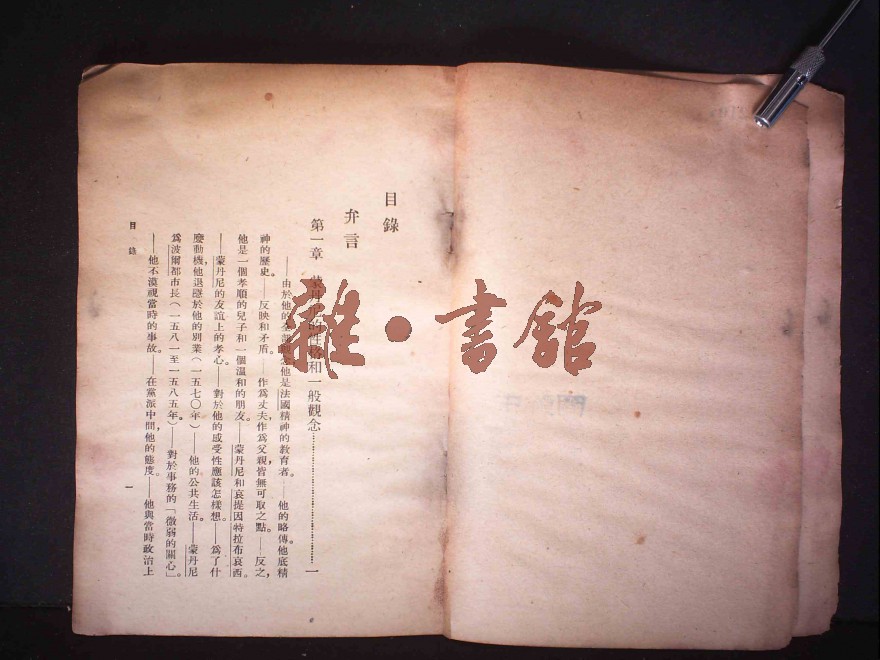 目錄
弁言
第一章 蒙丹尼的性格和一般觀念……………一
——由於他的 他是法國精神的教育者。——他的略傳。他底精
神的歷史。——反映和矛盾。——作爲丈夫,作爲父親,皆無可取之點。——反之,
他是一個孝順的兒子和一個溫和的朋友。——蒙丹尼和哀提因特拉布哀西。
——蒙丹尼的友誼上的孝心。——對於他的感受性應該怎樣想。——爲了什
麼動機,他退隱於他的別業(一五七〇年)——他的公共生活。——蒙丹尼
爲波爾都市長(一五八一至一五八五年)。——對於事務的「微弱的關心」。
——他不漠視當時的事故。——在黨派中間,他的態度。——他與當時政治上
目錄
一
雜·書館